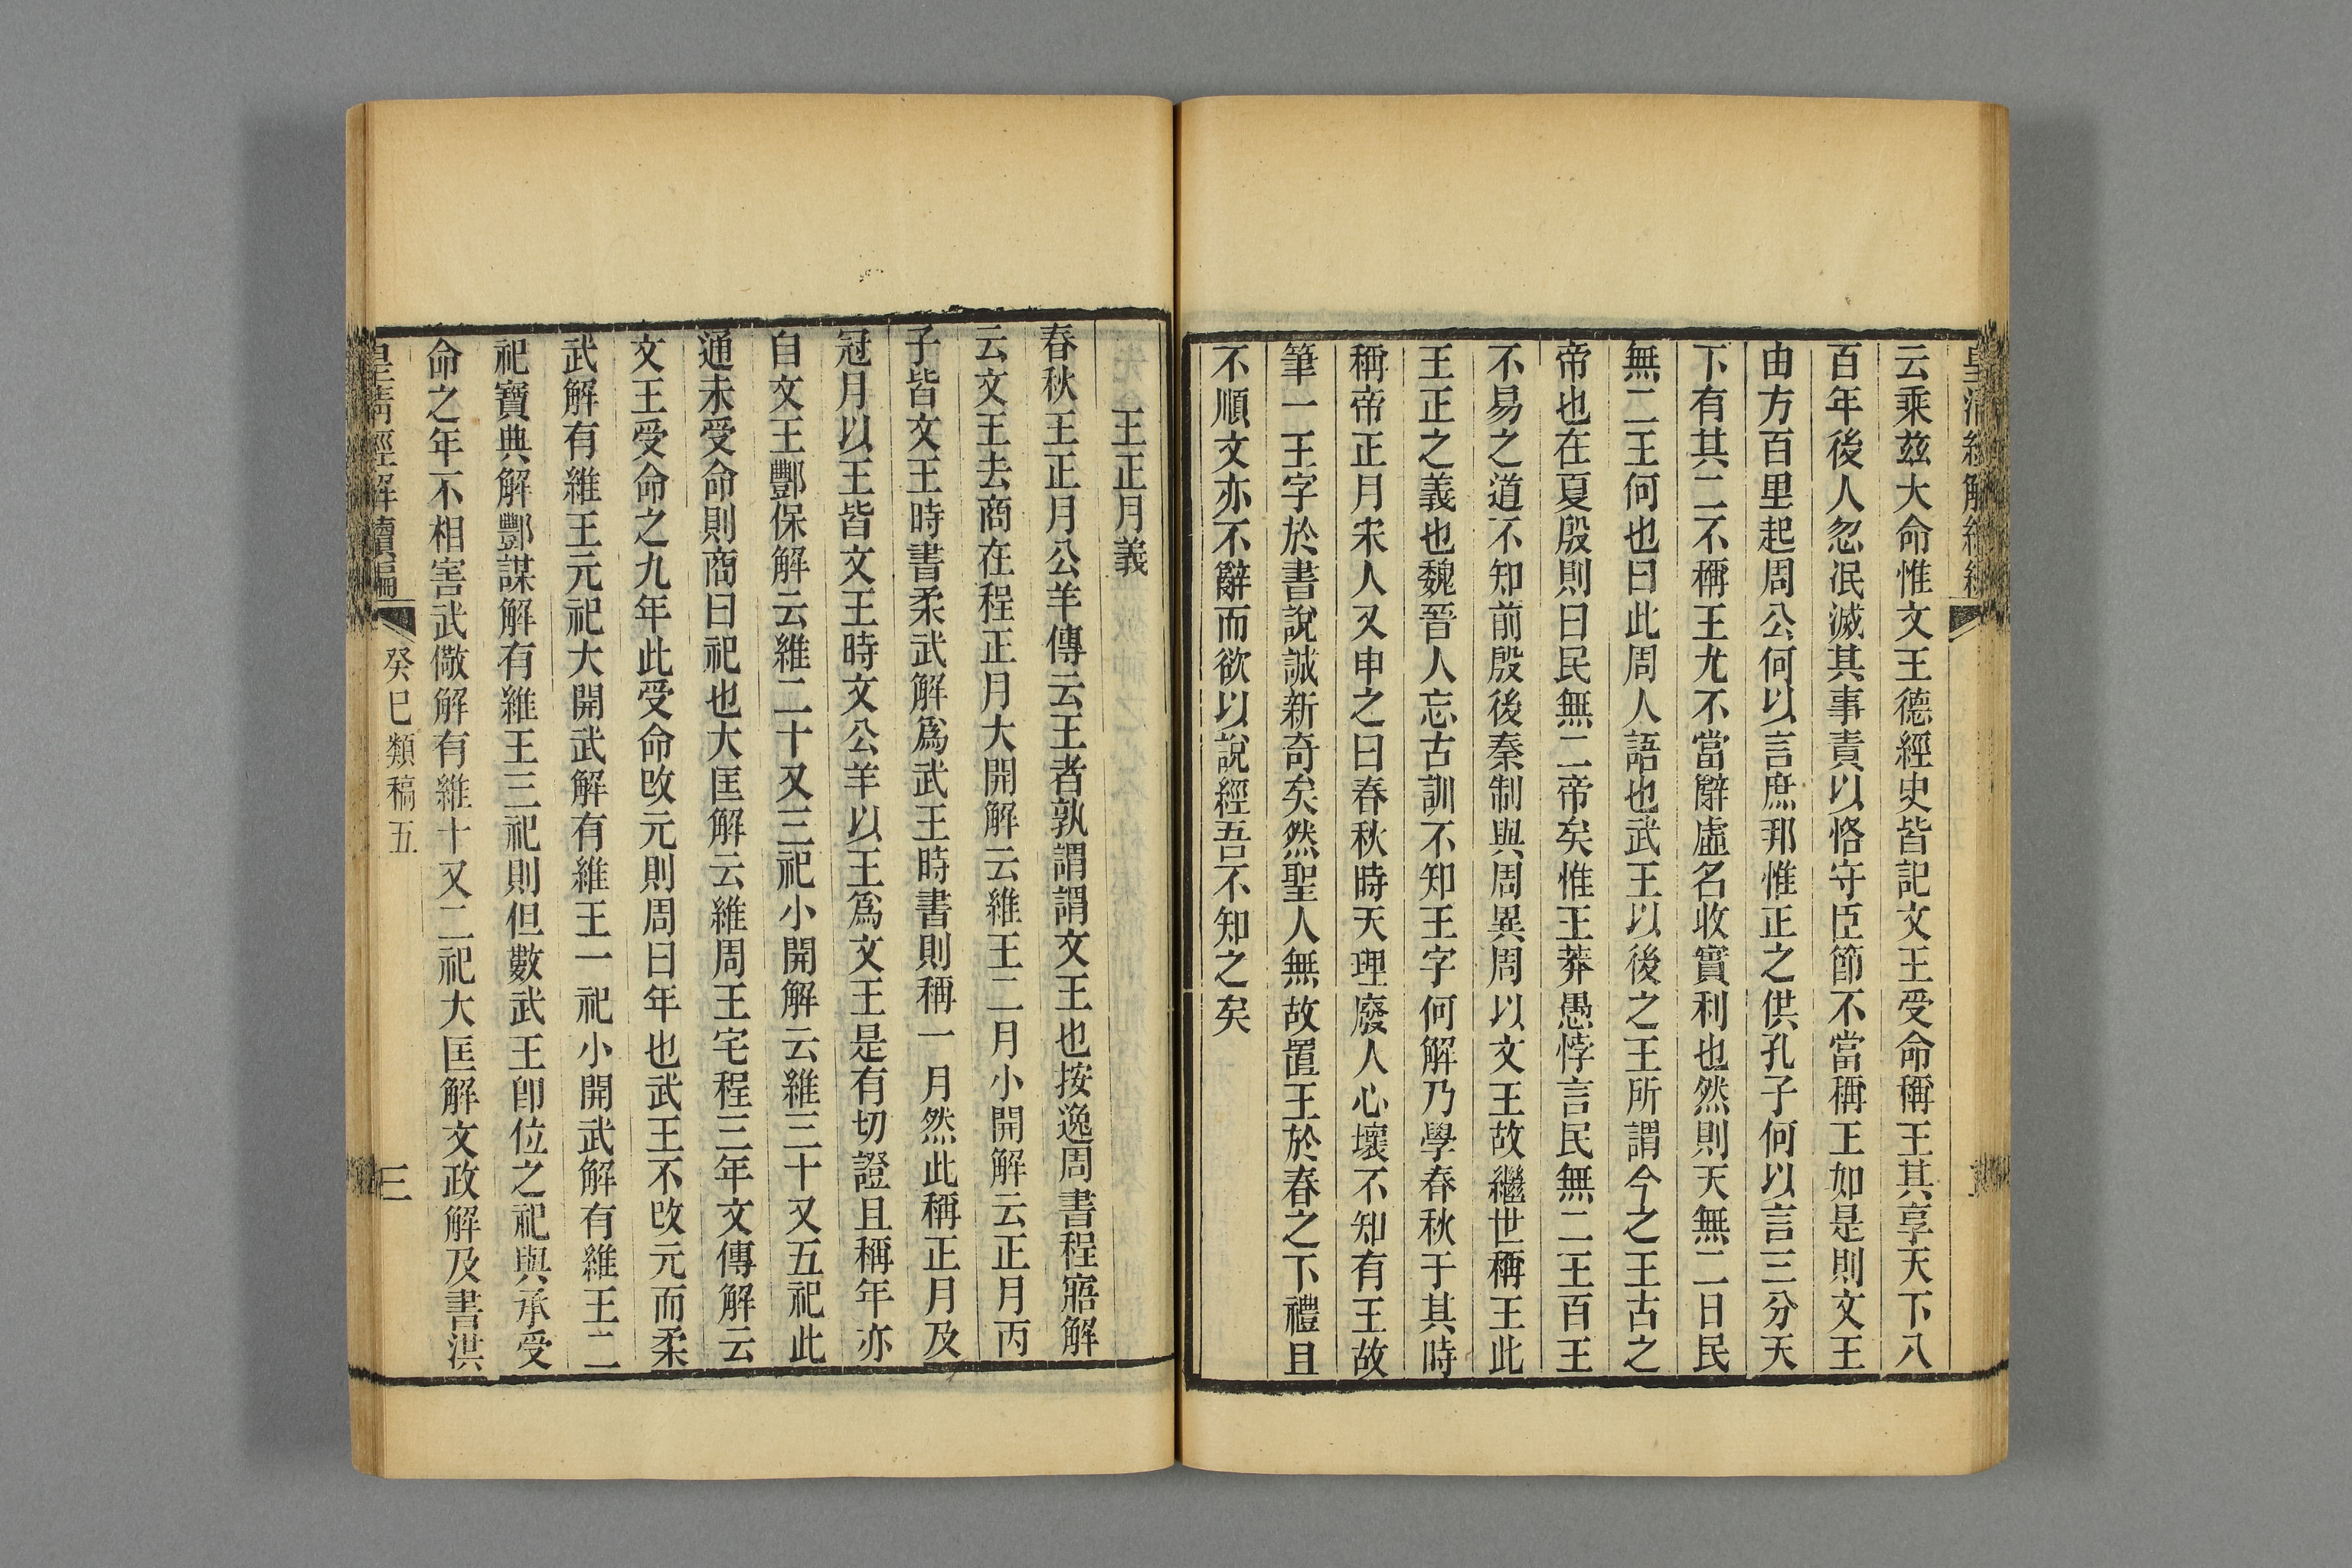 皇清經解續編
云乘茲大命惟文王德經史皆記文王受命稱王其享天下八
百年後人忽冺滅其事責以恪守臣節不當稱王如是則文王
由方百里起周公何以言庶邦惟正之供孔子何以言三分天
下有其二不稱王尤不當辭虛名收實利也然則天無二日民
無二王何也曰此周人語也武王以後之王所謂今之王古之
帝也在夏殷則曰民無二帝矣惟王莽愚悖言民無二王百王
不易之道不知前殷後秦制與周異周以文王故繼世稱王此
王正之義也魏晉人忘古訓不知王字何解乃學春秋于其時
稱帝正月宋人又申之曰春秋時天理廢人心壞不知有王故
筆一王字於書說誠新奇矣然聖人無故置王於春之下禮且
不順文亦不辭而欲以說經吾不知之矣
王正月義
春秋王正月公羊傳云王者孰謂謂文王也按逸周書程寤解
云文王去商在程正月大開解云維王二月小開解云正月丙
子皆文王時書柔武解爲武王時書則稱一月然此稱正月及
冠月以王皆文王時文公羊以王爲文王是有切證且稱年亦
自文王酆保解云維二十又三祀小開解云維三十又五祀此
通未受命則商曰祀也大匡解云維周王宅程三年文傳解云
文王受命之九年此受命改元則周曰年也武王不改元而柔
武解有維王元祀大開武解有維王一祀小開武解有維王二
祀寶典解酆謀解有維王三祀則但數武王卽位之祀與承受
命之年不相害武儆解有維十又二祀大匡解文政解及書洪
皇清經解續編
癸巳類稿五
三